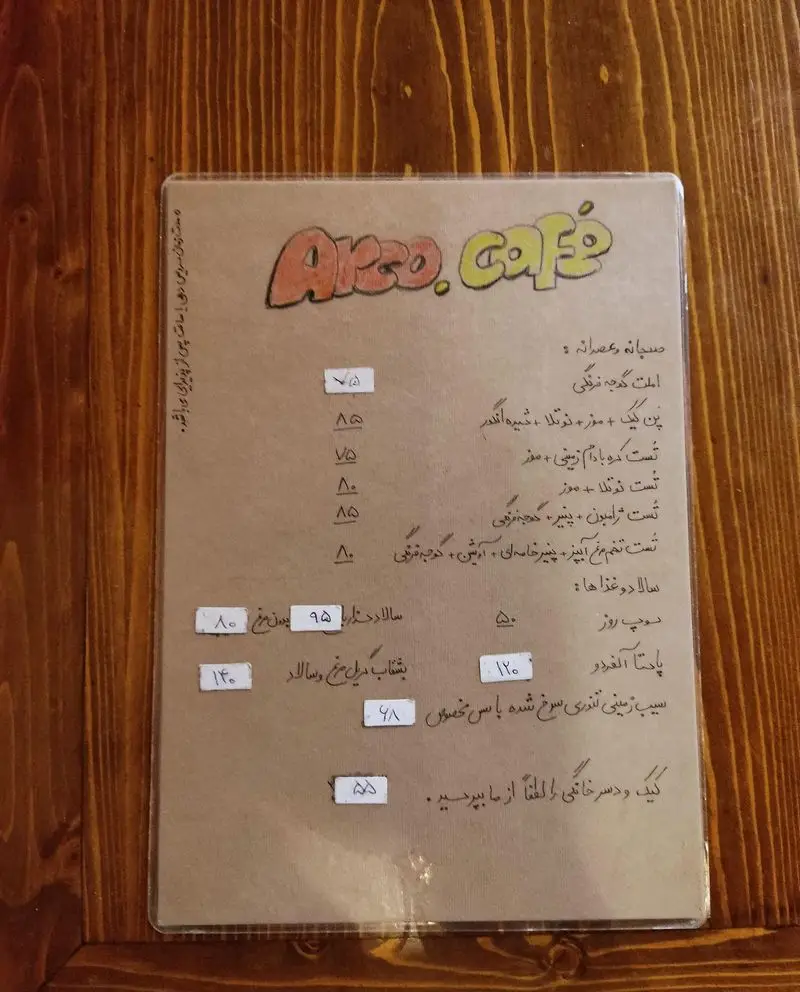 Arco.café
صبحانه و عصرانه :
املت گوجه فرنگی ۷۵
پَن کیک + موز + نوتلا + شیره انگور ۸۵
تُست کره بادام زمینی + موز ۷۵
تُست نوتلا + موز ۸۰
تُست ژامبون + پنیر + گوجه فرنگی ۸۵
تُست تخم مرغ آبپز + پنیر خامه ای + آویشن + گوجه فرنگی ۸۰
سالاد و غذا ها :
سوپ روز ۵۰ سالاد سزار با ۹۵ بدون مرغ ۸۰
پاستا آلفردو ۱۲۰ بشقاب گریل مرغ و سالاد ۱۴۰
سیب زمینی تنوری سرخ شده با سس مخصوص ۶۸
کیک و دسر خانگی را لطفاً از ما بپرسید . ۵۵
مدت زمان سرویس دهی ۱ ساعت پس از پذیرایی می باشد.